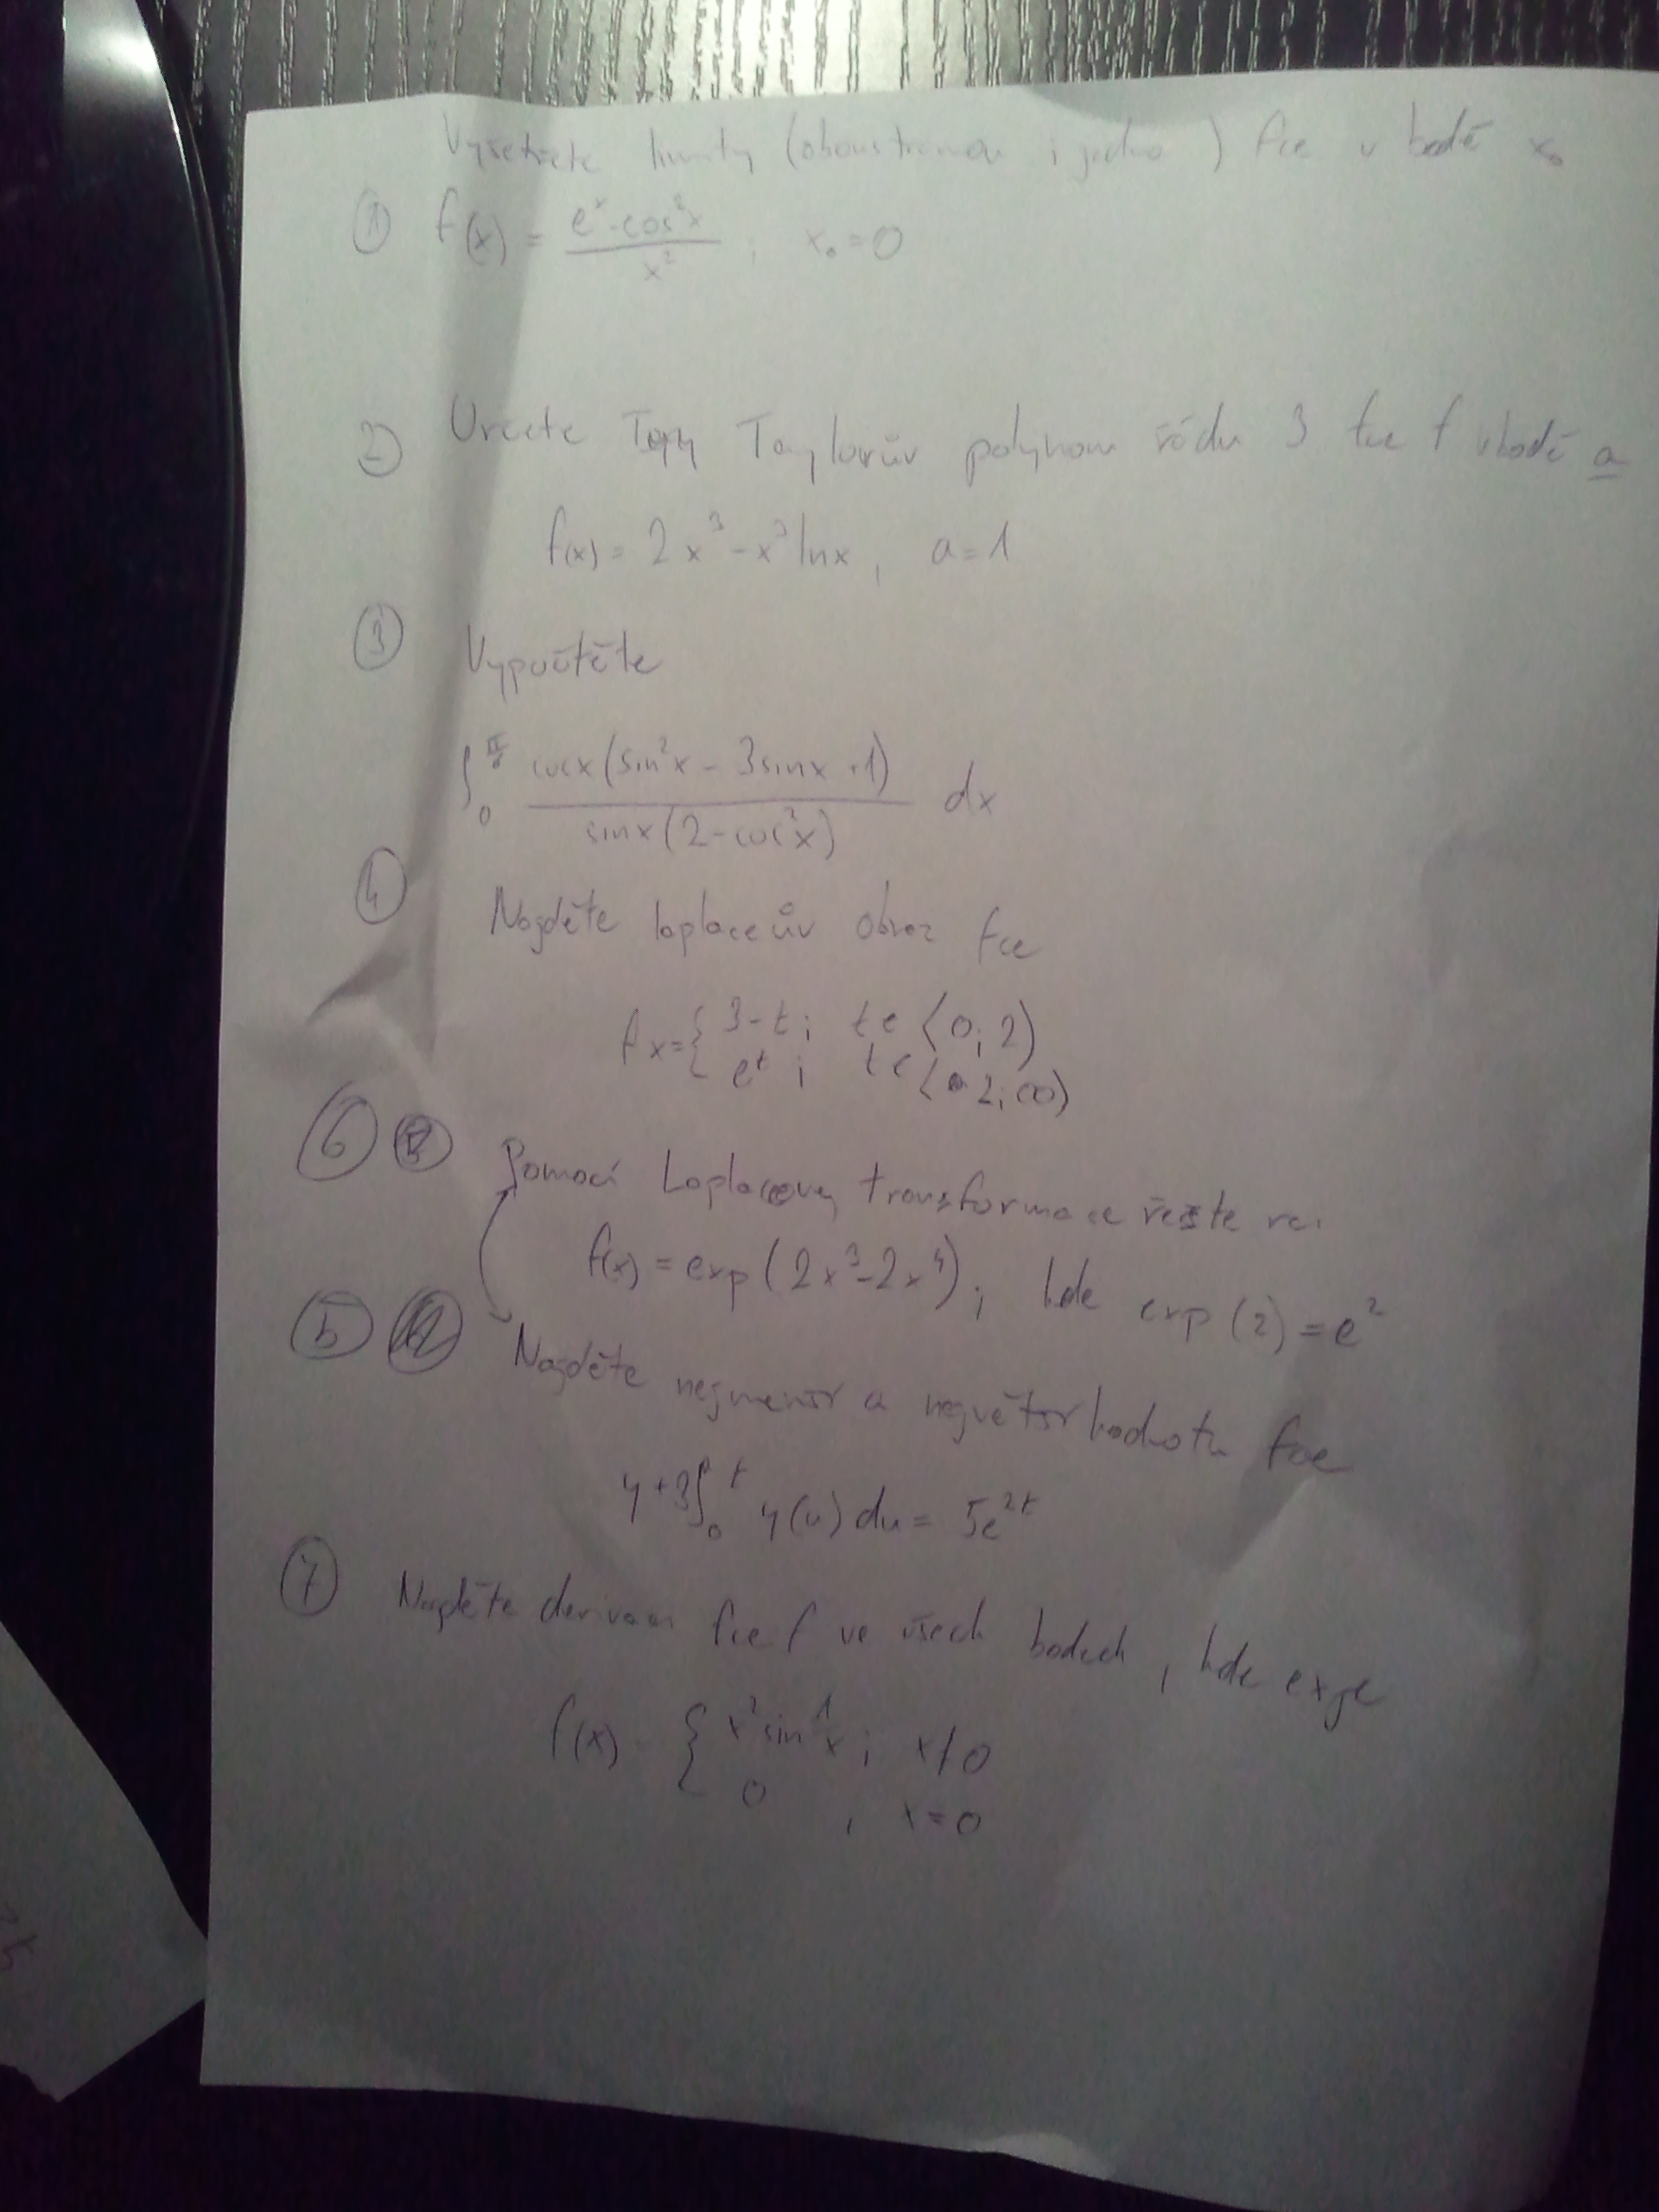 Vyšetřete limity (oboustrannou i jedno ) fce v bodě x₀
① f(x) = (eˣ-cos²x)/x² ; x₀=0
② Určete Taylorův polynom řádu 3 fce f v bodě a
f(x) = 2x³-x³lnx, a=1
③ Vypočtěte
∫₀ cosx(sin²x - 3sinx +1)/(sinx(2-cos²x)) dx
④ Najděte laplaceův obraz fce
fx={ 3-t ; t∈⟨0;2)
eᵗ ; t∈⟨2;∞)
⑥ Pomocí Laplaceovy transformace řešte
f(x) = exp(2x³-2x⁴) ; kde exp(2)=e²
⑤ Najděte nejmenší a největší hodnotu fce
y+3∫₀ᵗ y(u)du = 5e²ᵗ
⑦ Najděte derivaci fce f ve všech bodech, kde exje
f(x) = { x²sin 1/x ; x≠0
0 , x=0